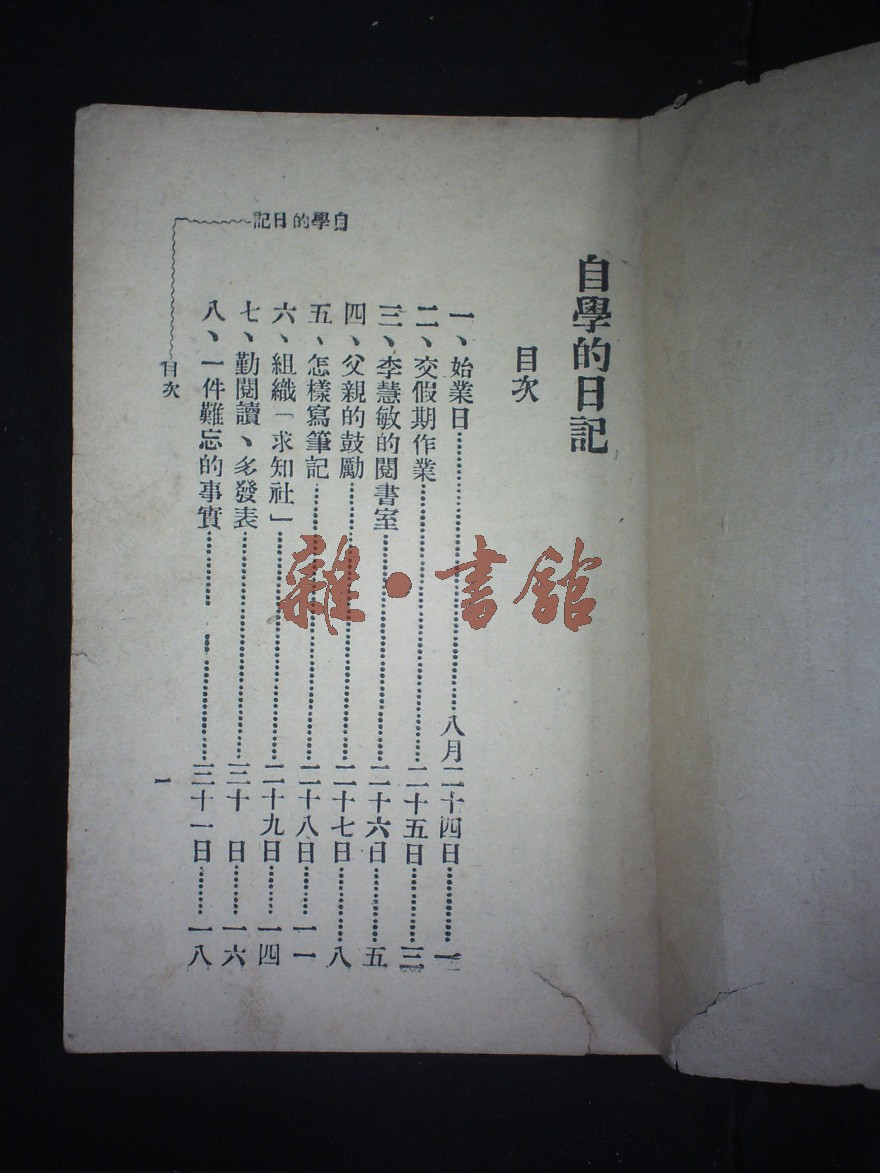 自學的日記
目次
一、始業日……八月二十四日……一
二、交假期作業……二十五日……三
三、李慧敏的閱書室……二十六日……五
四、父親的鼓勵……二十七日……八
五、怎樣寫筆記……二十八日……一一
六、組織「求知社」……二十九日……一四
七、勤閱讀、多發表……三十日……一六
八、一件難忘的事實……三十一日……一八
自學的日記
目次
一
雜·書館